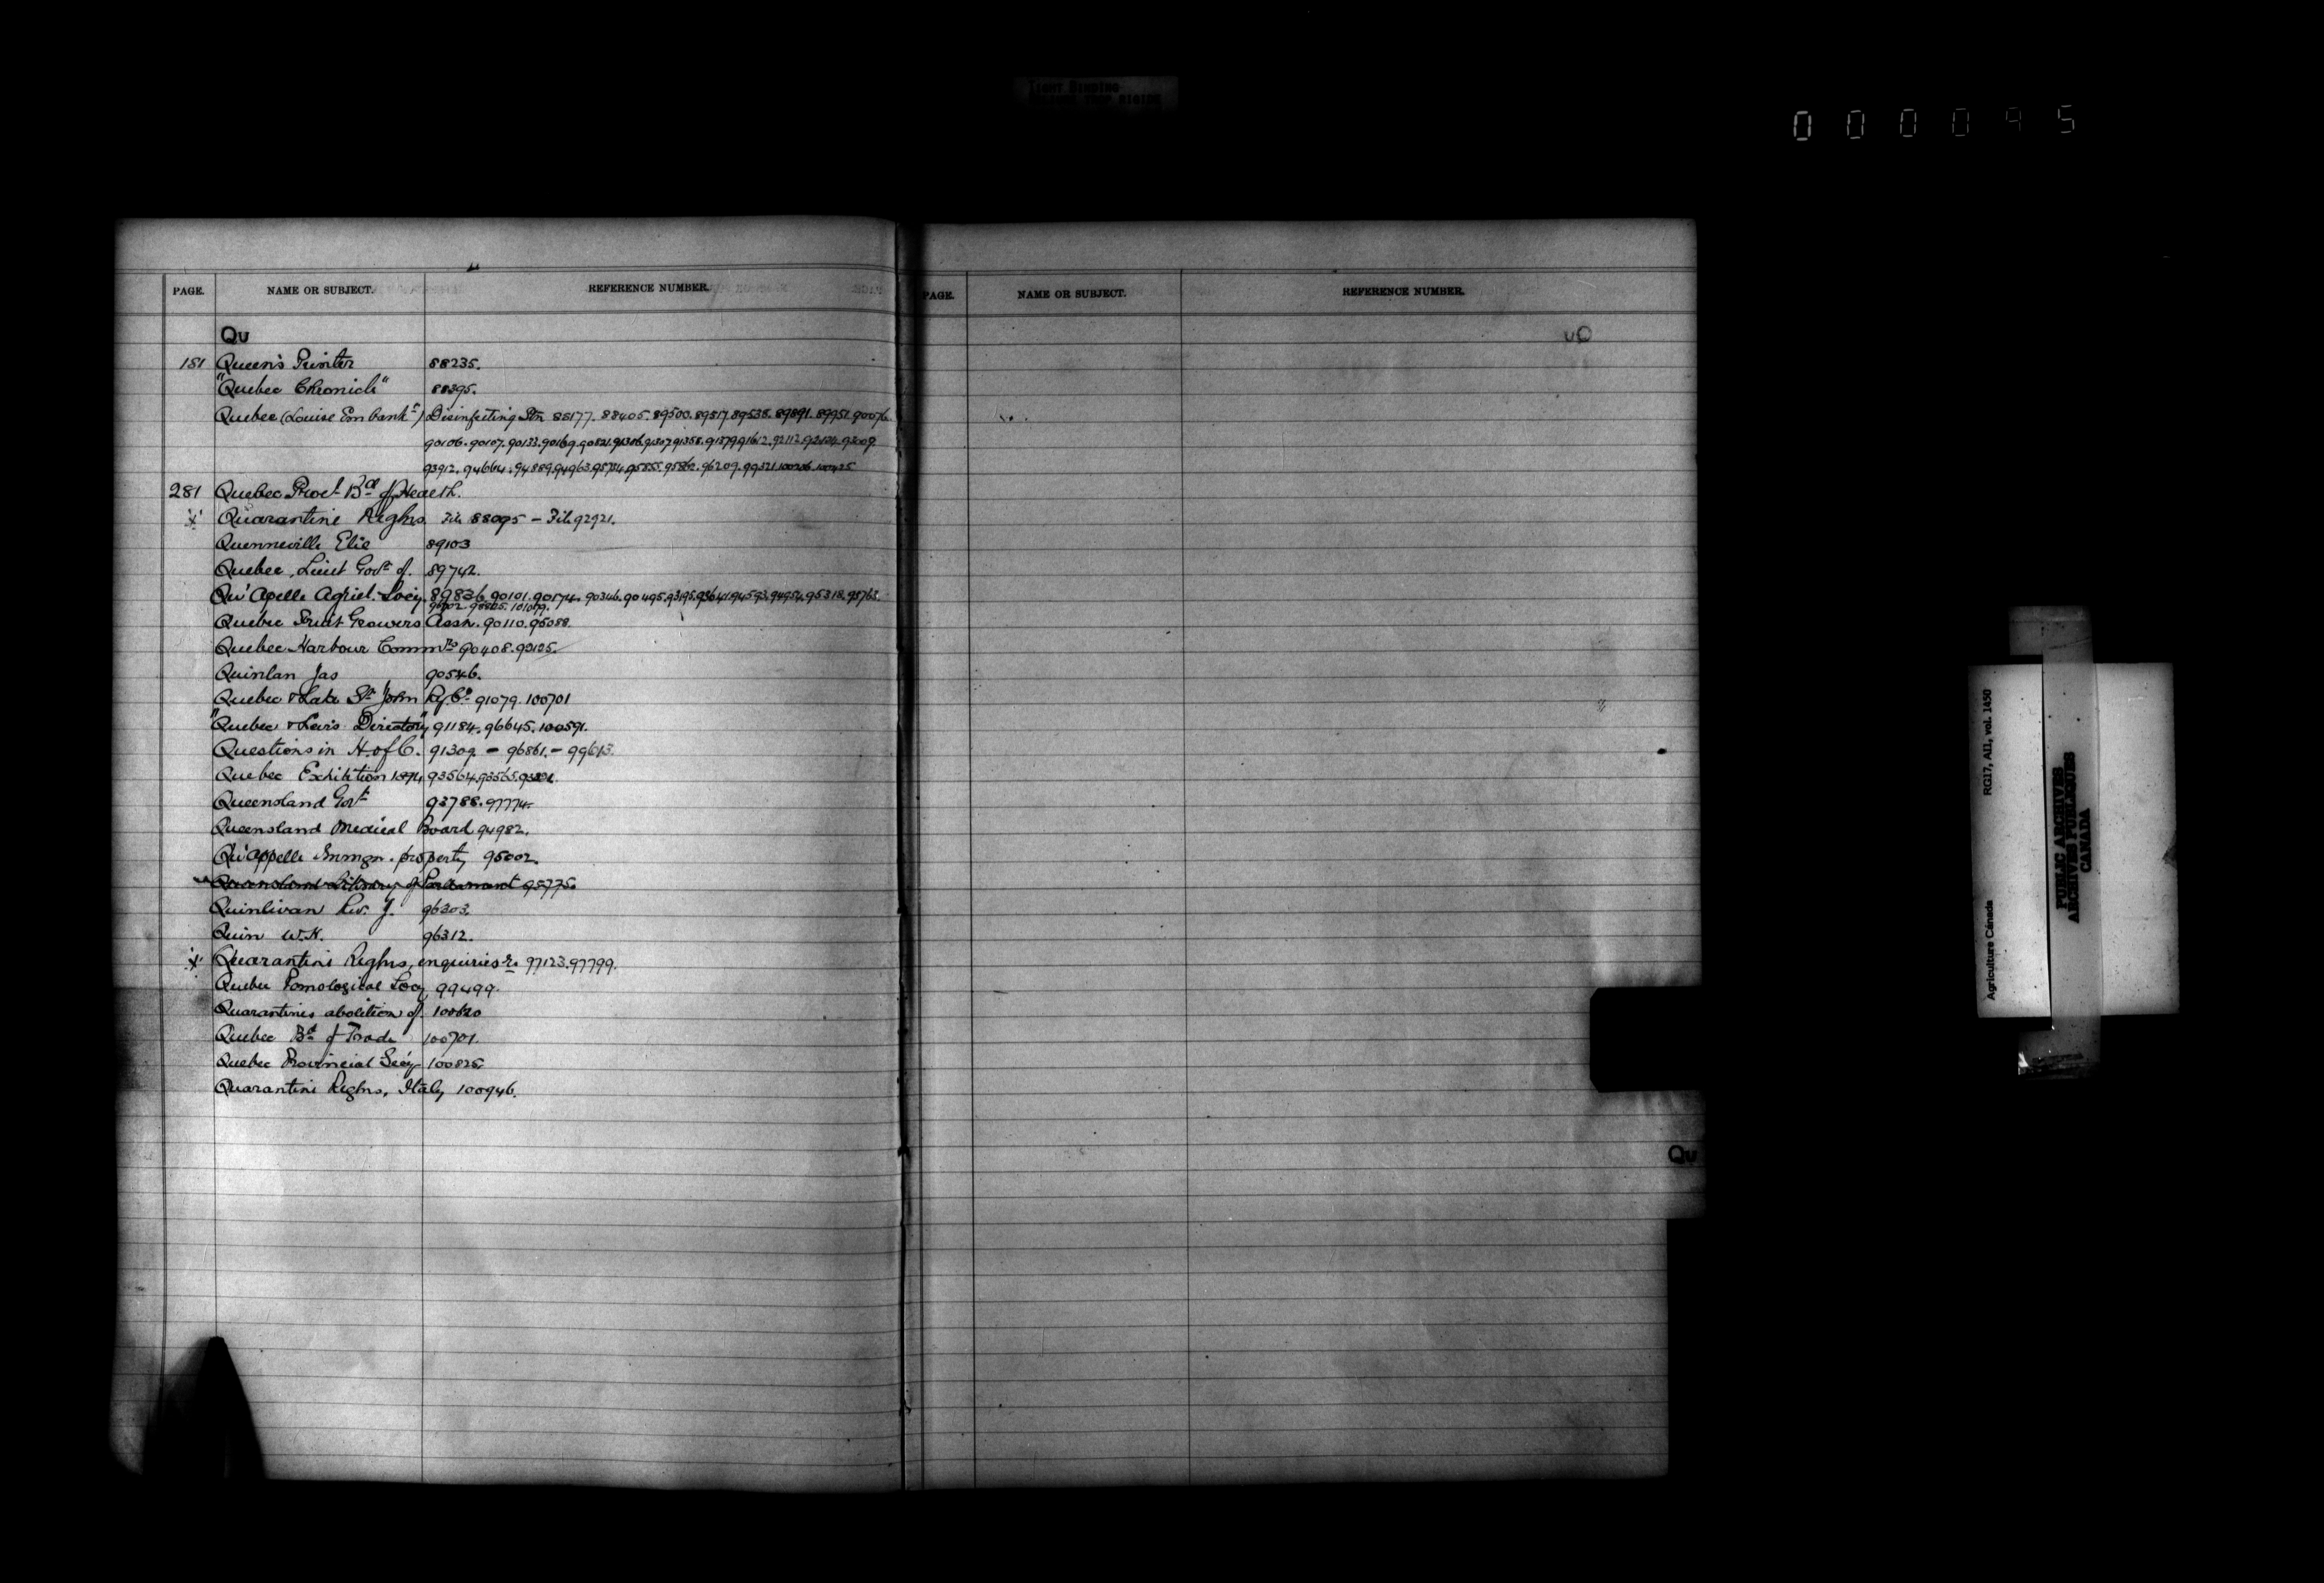 TIGHT BINDING
000095
PAGE. NAME OR SUBJECT. REFERENCE NUMBER.
Qu
181 Queen's Printer 88235.
"Quebec Chronicle" 88395.
Quebec (Louise Embankt) Disinfecting Stn 88177. 88405. 89500. 89517. 89538. 89891. 89951. 90076.
90106. 90107. 90133. 90169. 90821. 91306. 91307. 91358. 91379. 91612. 92112.
93912. 94664. 94889. 94963. 95855. 95862. 96209. 99321. 100206. 100425
281 Quebec Provl Bd of Health.
Quarantine Reglns. File 88095 – File 92921.
Quenneville Elie 89103
Quebec, Lieut Govr of. 89742.
Qu'Apelle Agricl. Socy. 89836. 90101. 90174. 90346. 90495. 93195. 93641. 94593. 94954. 95318. 95763.
98805. 101079.
Quebec Fruit Growers Assn. 90110. 95088.
Quebec Harbour Commrs 90408. 92125.
Quinlan Jas 90546.
Quebec & Lake St John Ry. Co. 91079. 100701
"Quebec & Levis Directory" 91184. 96645. 100591.
Questions in H. of C. 91309. – 96861. – 99613.
Quebec Exhibition 1894 93564. 93565.
Queensland Govt 93788. 97774.
Queensland Medical Board 94982.
Qu'appelle Immgn. property 95002.
Queensland Library of Parliament 95775.
Quinlivan Rev. J. 96303.
Quin W.H. 96312.
Quarantine Reglns, enquiries re 97123. 97799.
Quebec Pomological Socy 99499.
Quarantines abolition of. 100620
Quebec Bd of Trade 100701.
Quebec Provincial Secy 100825.
Quarantine Reglns, Italy 100946.
PAGE. NAME OR SUBJECT. REFERENCE NUMBER.
Qu
RG17, AII, vol. 1450
Agriculture Canada
PUBLIC ARCHIVES
ARCHIVES PUBLIQUES
CANADA